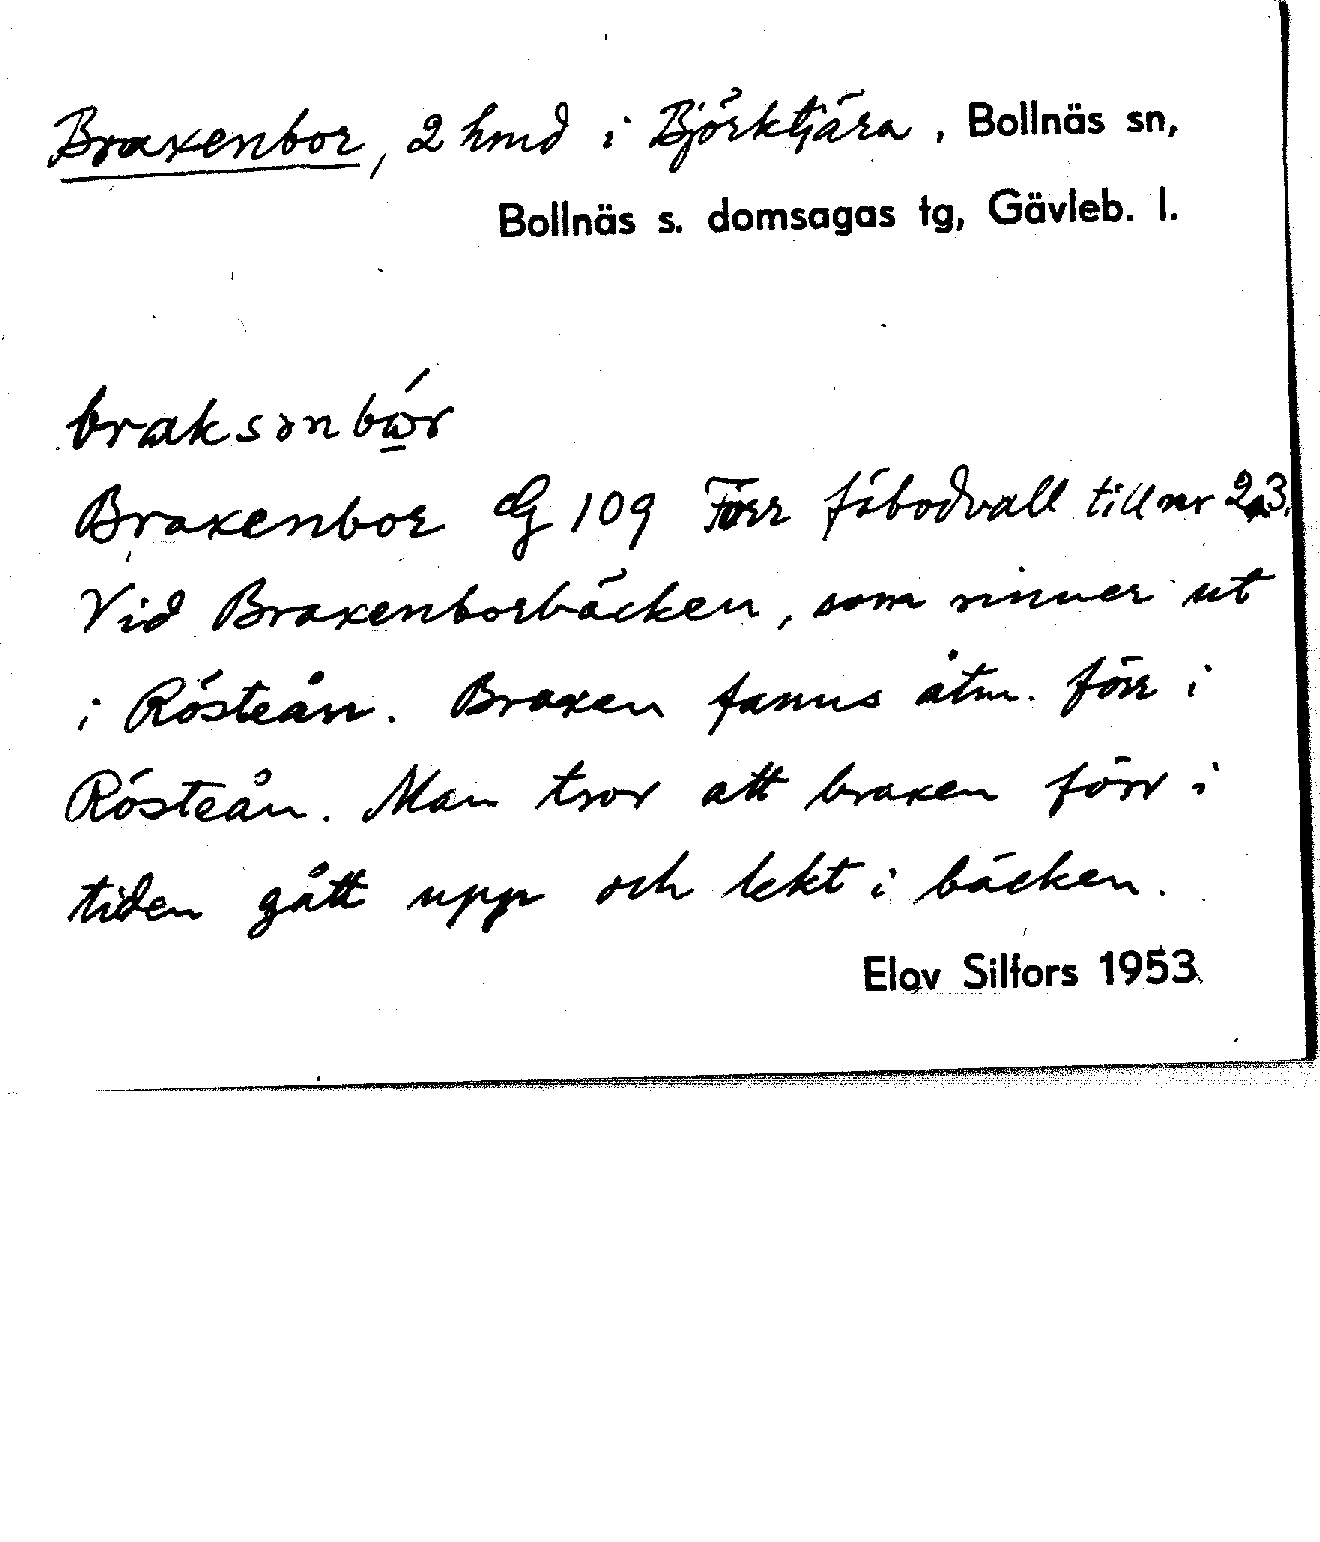 Braxenbor, 2 hmd i Björktjära, Bollnäs sn,
Bollnäs s. domsagas tg, Gävleb. l.
braksənbώ̲r
Braxenbor G 109 Förr fäbodvall till nr 2,3.
Vid Braxenborbäcken, som rinner ut
i Rösteån. Braxen fanns åtm. förr i
Rösteån. Man tror att braxen förr i
tiden gått upp och lekt i bäcken.
Elov Silfors 1953